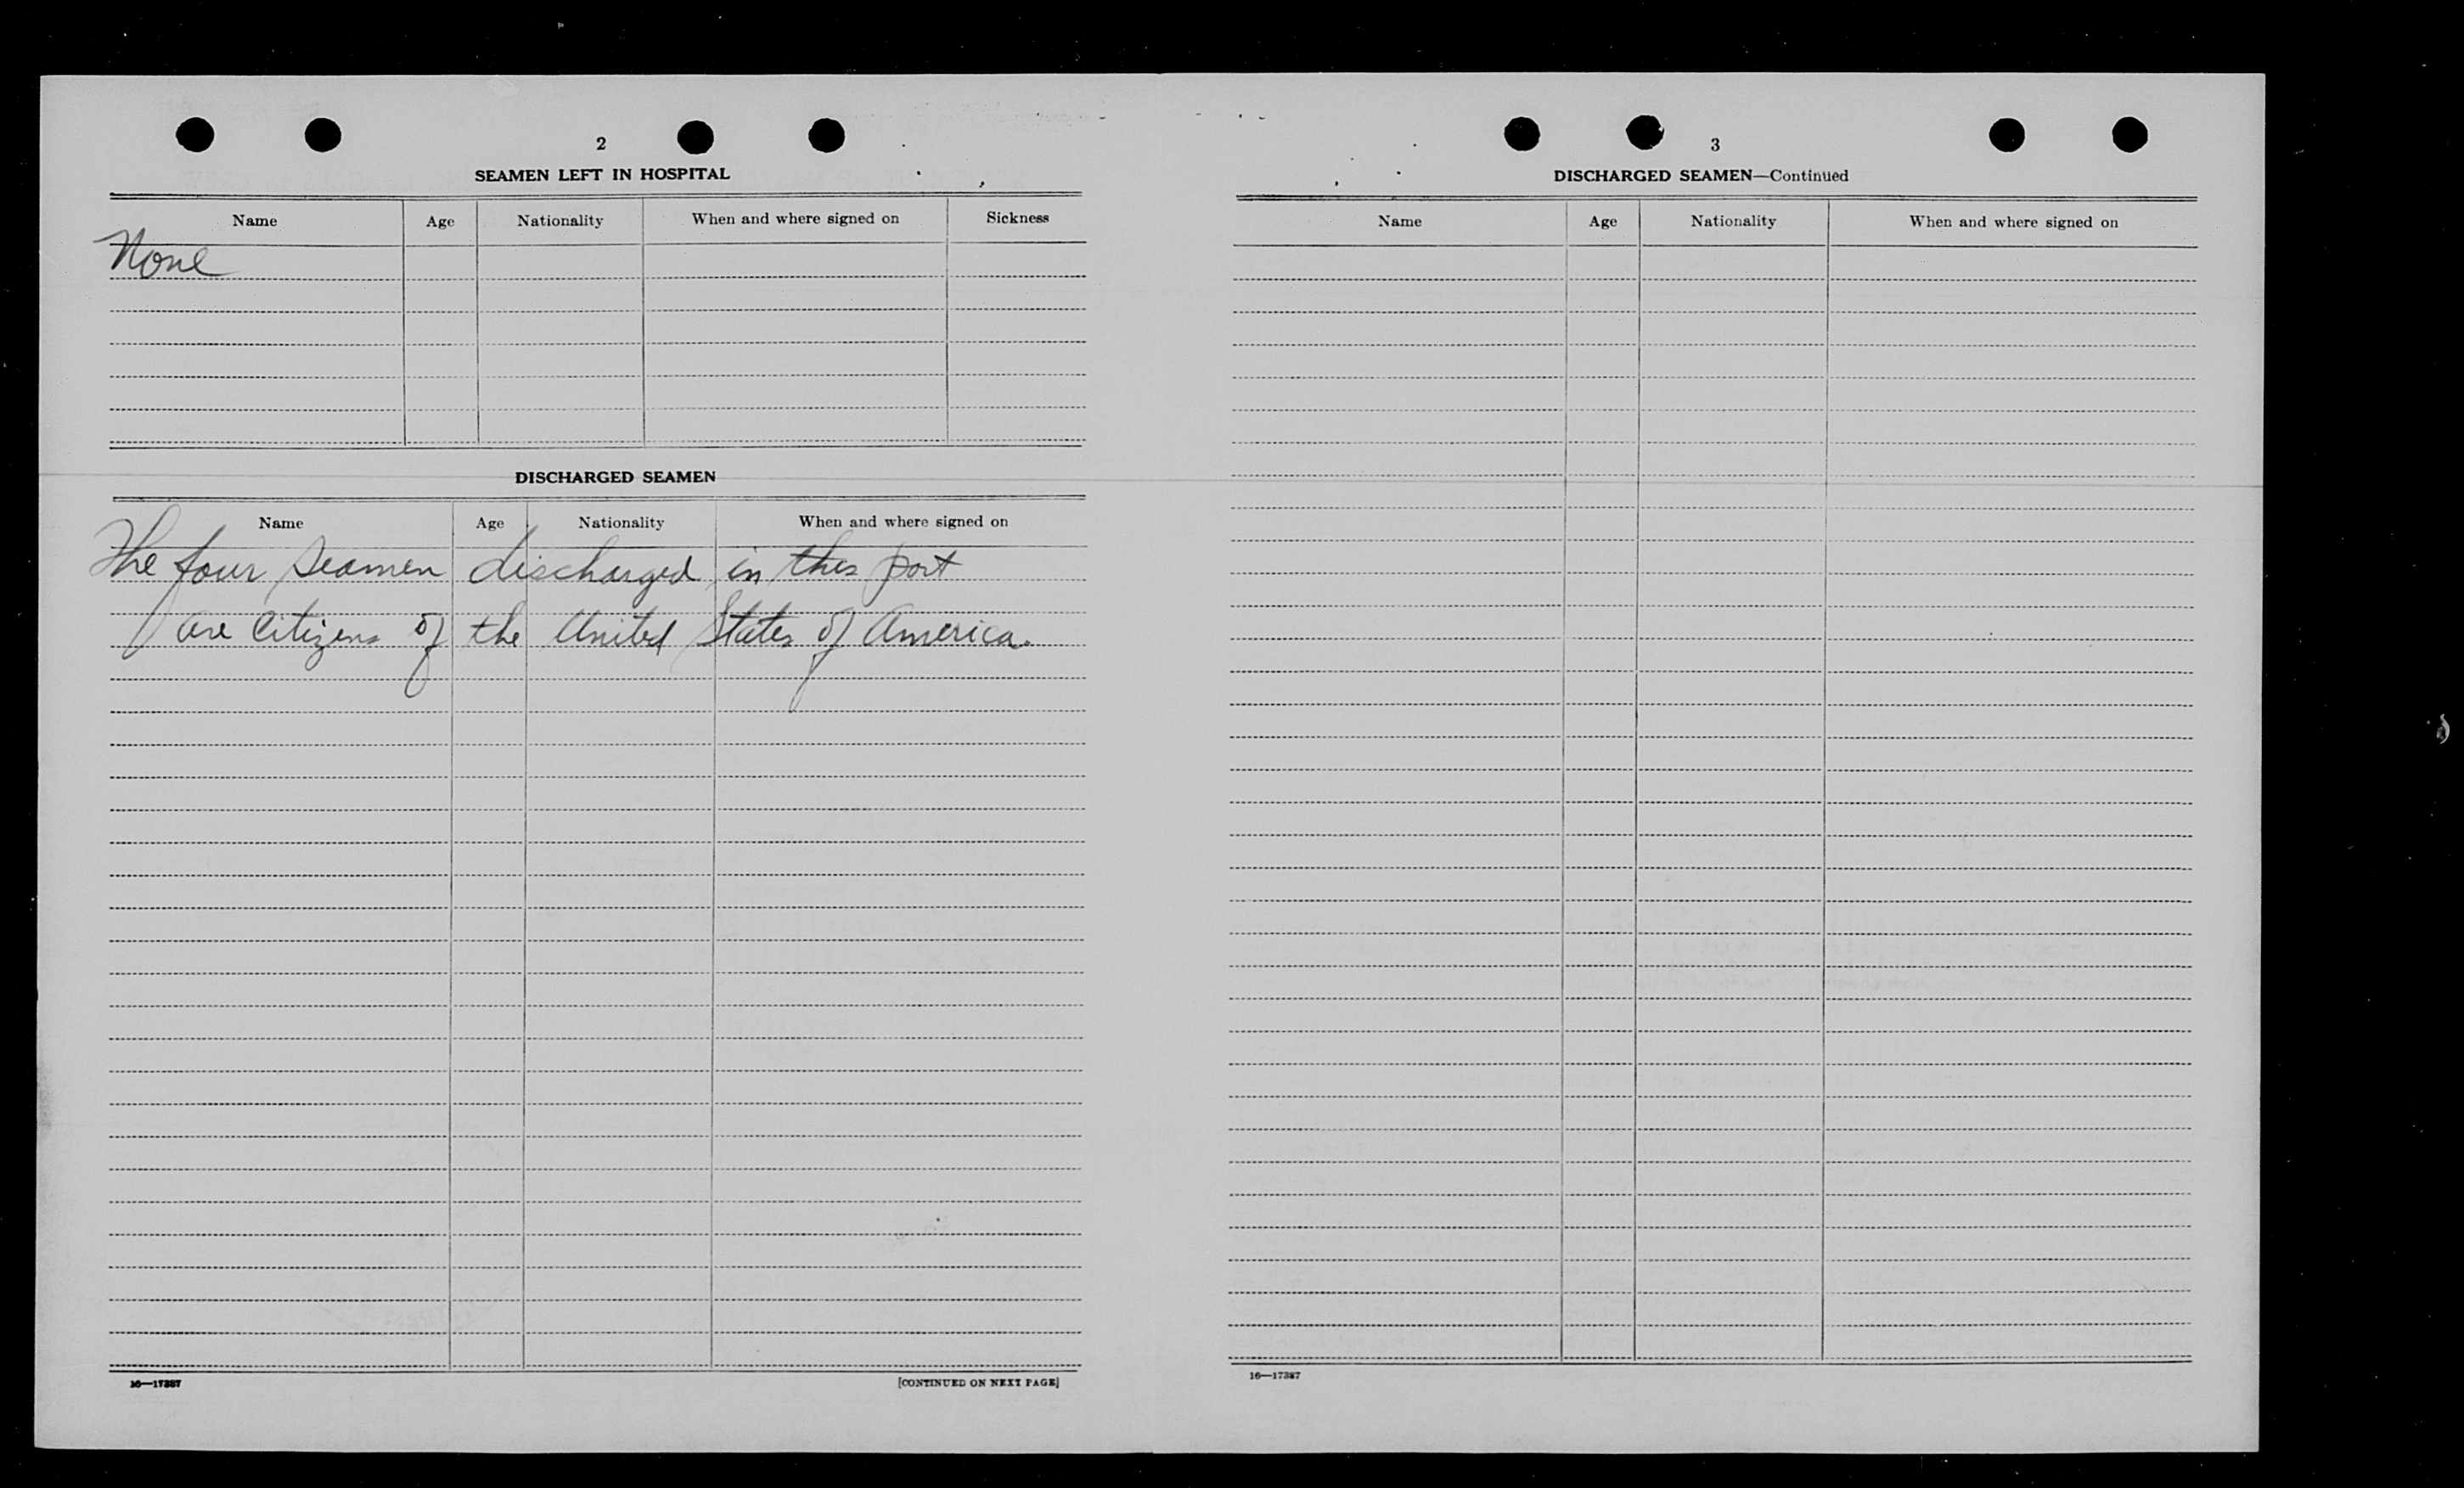 2
SEAMEN LEFT IN HOSPITAL
Name Age Nationality When and where signed on Sickness
None
DISCHARGED SEAMEN
Name Age Nationality When and where signed on
The four seamen discharged in this port
are Citizens of the United States of America.
16—17387
[CONTINUED ON NEXT PAGE]
3
DISCHARGED SEAMEN—Continued
Name Age Nationality When and where signed on
16—17387